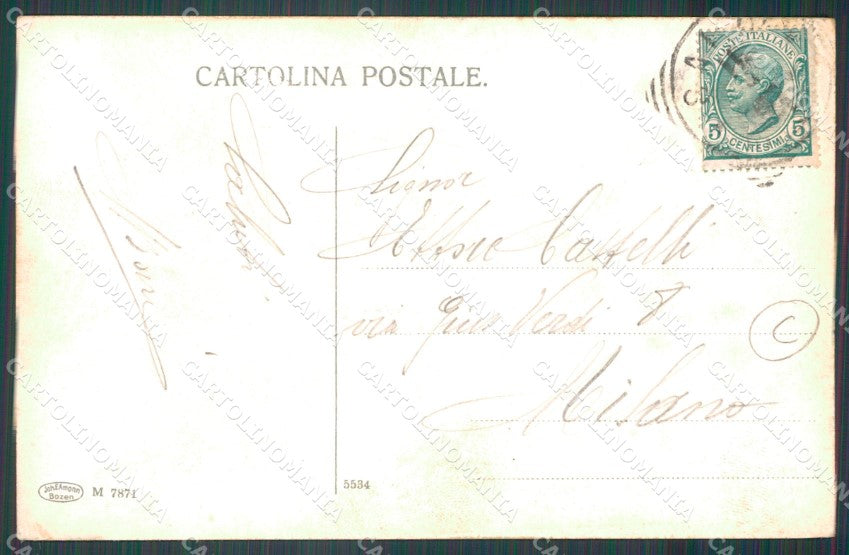 CARTOLINA POSTALE.
POSTE ITALIANE
5 5
CENTESIMI
Saluti
Signor
Ettore Castelli
via Gius. Verdi 8
Milano
C
Joh. F. Amonn
Bozen
M 7871
5534
CARTOLINOMANIA